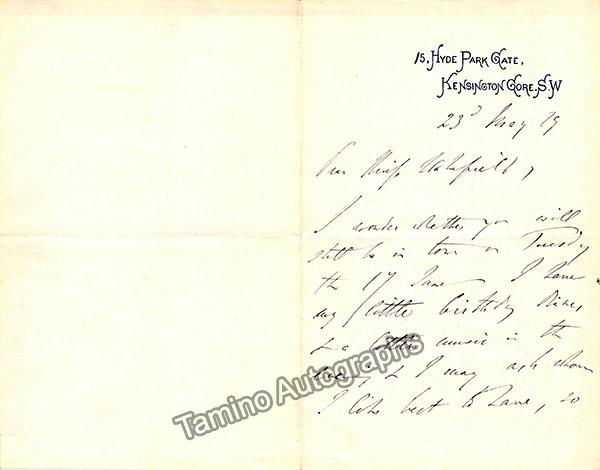 15, HYDE PARK GATE,
KENSINGTON GORE. S.W
23d May 79
Dear Miss Wakefield,
I wonder whether you will
still be in town on Tuesday
the 17 June I have
my little birthday dinner
& a little music in the
& I may ask whom
I like best to have, so
Tamino Autographs